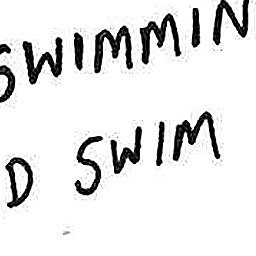 SWIMMIN
D SWIM